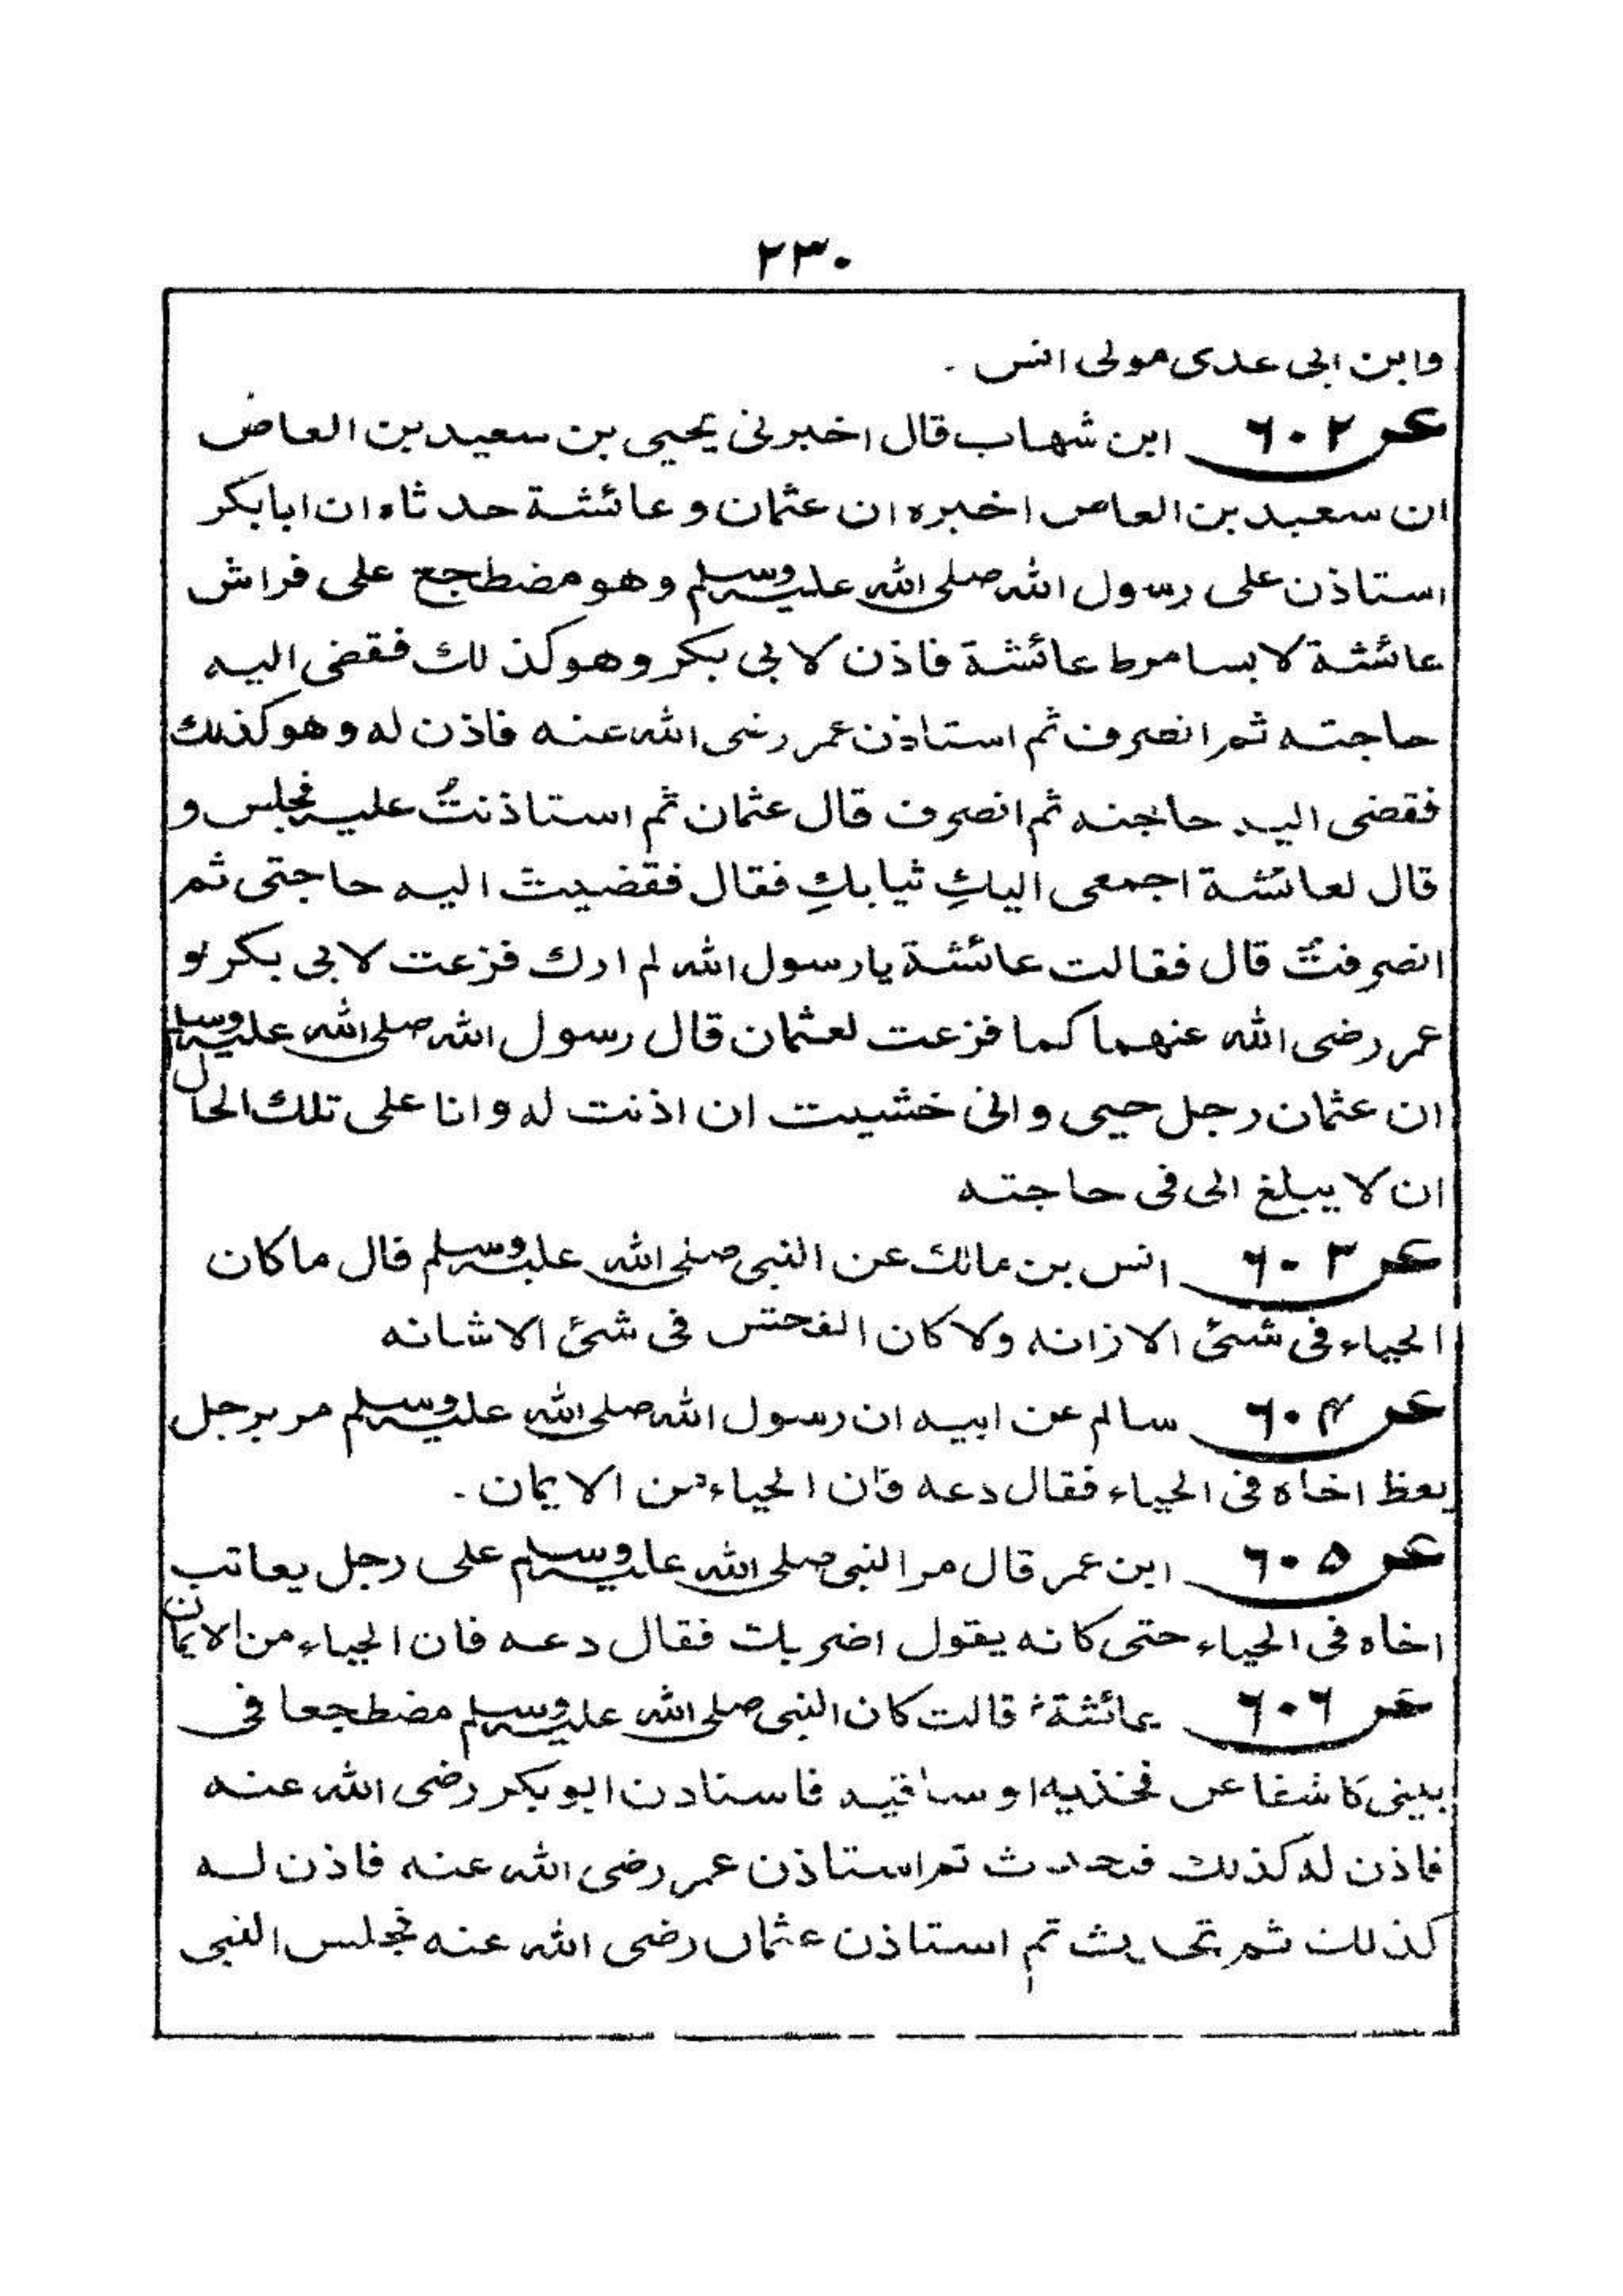 ٢٣٠
وابن ابی عدی مولی انس .
عن ٦٠٢ ابن شهاب قال اخبرنی یحیی بن سعید بن العاص
ان سعید بن العاص اخبره ان عثمان و عائشة حدثاه ان ابابکر
استاذن علی رسول الله صلی الله علیہ وسلم وهو مضطجع علی فراش
عائشة لابسا مرط عائشة فاذن لابی بکر وهو کذلك فقضی الیه
حاجته ثم انصرف ثم استاذن عمر رضی الله عنه فاذن له وهو کذلك
فقضی الیه حاجته ثم انصرف قال عثمان ثم استاذنتُ علیه فجلس و
قال لعائشة اجمعی الیكِ ثیابكِ فقال فقضیت الیه حاجتی ثم
انصرفتُ قال فقالت عائشة یا رسول الله لم ارك فزعت لابی بکر و
عمر رضی الله عنهما کما فزعت لعثمان قال رسول الله صلی الله علیہ وسلم
ان عثمان رجل حیی وانی خشیت ان اذنت له وانا علی تلك الحال
ان لا یبلغ الی فی حاجته
عن ٦٠٣ انس بن مالك عن النبی صلی الله علیہ وسلم قال ما کان
الحیاء فی شئ الا زانه ولا کان الفحش فی شئ الا شانه
عن ٦٠۴ سالم عن ابیه ان رسول الله صلی الله علیہ وسلم مر برجل
یعظ اخاه فی الحیاء فقال دعه فان الحیاء من الایمان .
عن ٦٠۵ ابن عمر قال مر النبی صلی الله علیہ وسلم علی رجل یعاتب
اخاه فی الحیاء حتی کانه یقول اضر بك فقال دعه فان الحیاء من الایمان
عن ٦٠٦ عائشة قالت کان النبی صلی الله علیہ وسلم مضطجعا فی
بیتی کاشفا عن فخذیه او ساقیه فاستاذن ابو بکر رضی الله عنه
فاذن له کذلك فتحدث ثم استاذن عمر رضی الله عنه فاذن له
کذلك ثم تحدث ثم استاذن عثمان رضی الله عنه فجلس النبی